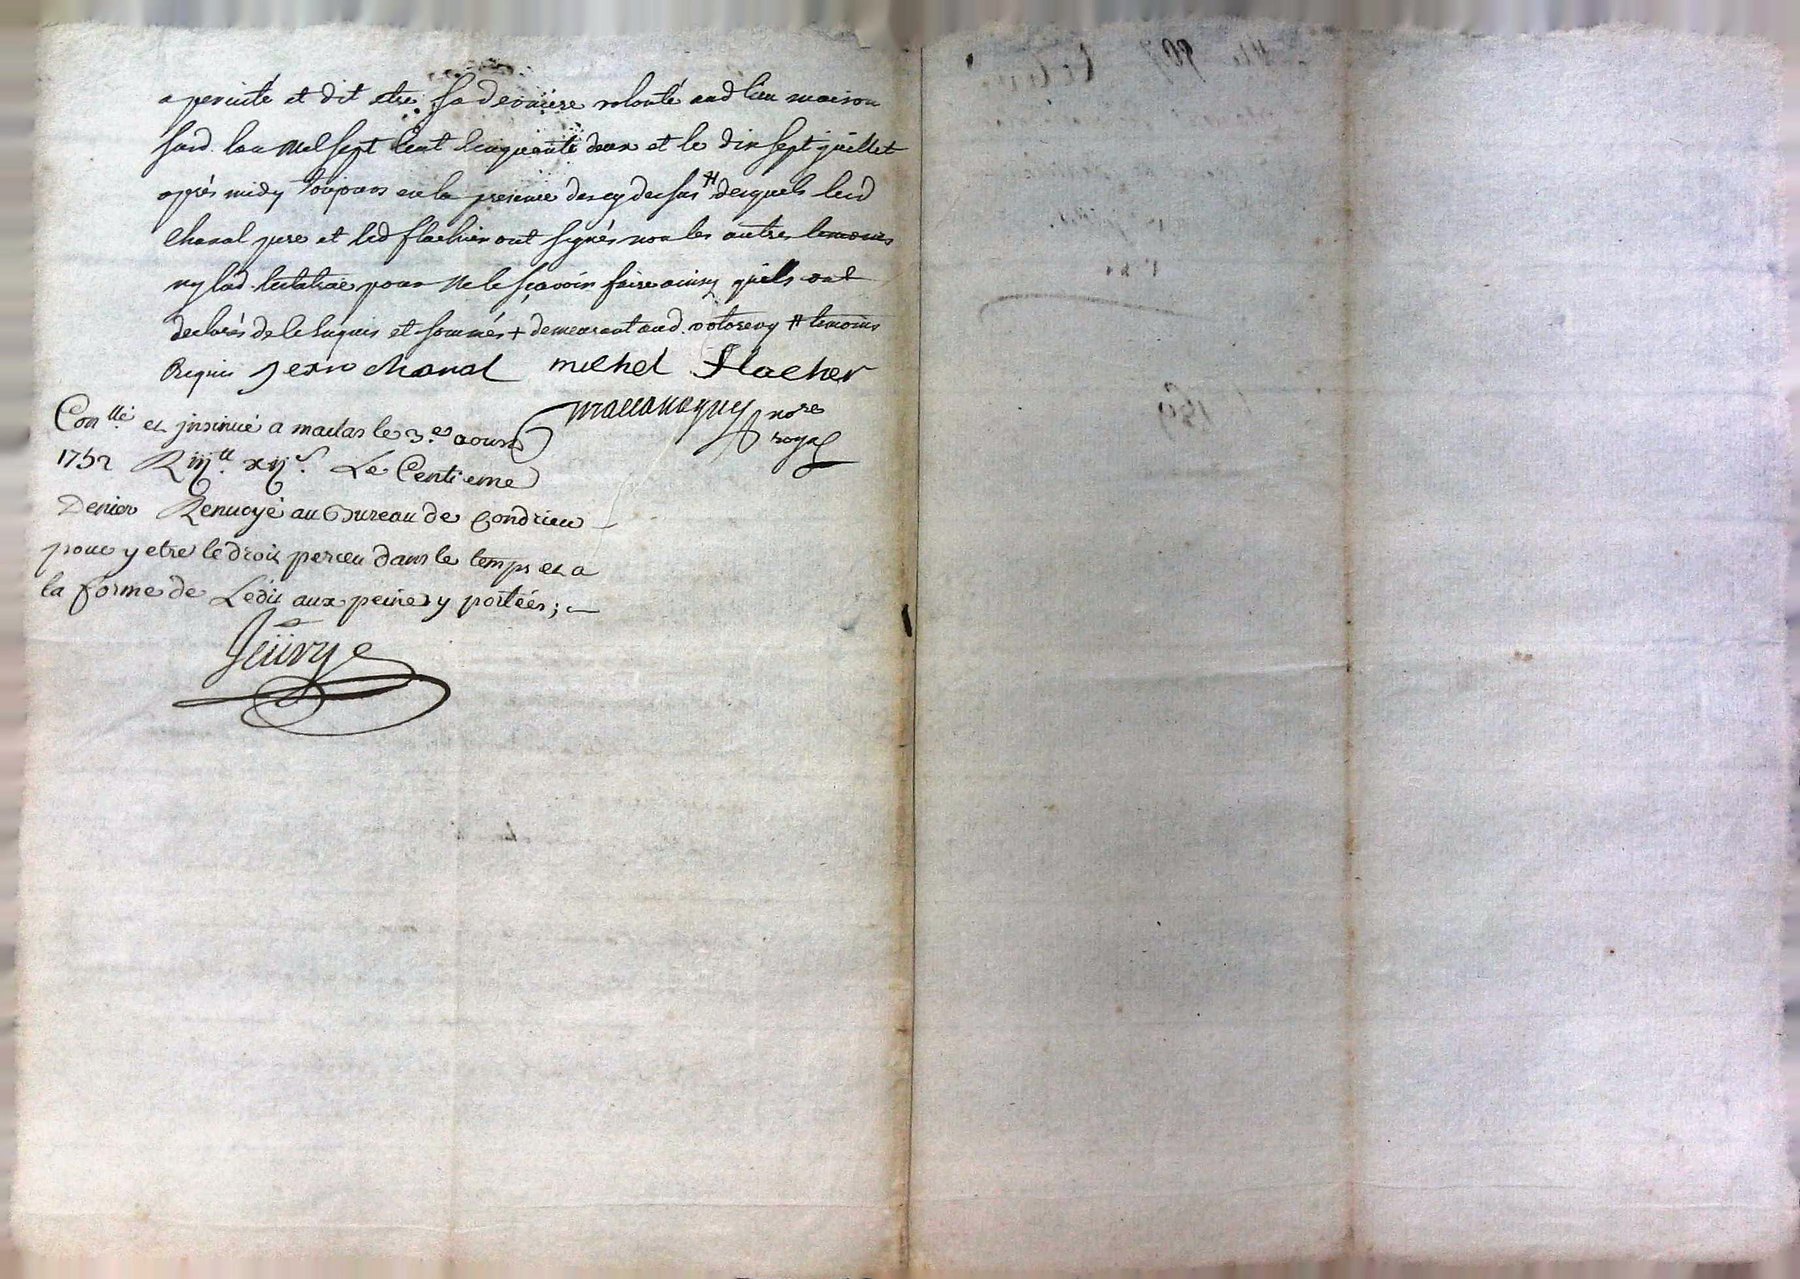 a persisté et dit etre sa derniere volonté aud lieu maison
susd. lan mil sept cent cinquante deux et le dix sept juillet
après midy toujours en la presence des cy dessus # desquels led
Chanal pere et led flachier ont signés non les autres temoins
ny lad. testatrice pour ne le sçavoir faire ainsy quils ont
declarés de ce enquis et sommés + demeurant aud. # temoins
Requis jean chanal michel flacher
nore
royal
Conllé et jnsinué a maclas le 3.e aoust
1752 R iijtt xijs. Le Centieme
Denier Renvoyé au Bureau de Condrieu
pour y etre le droit perceu dans le temps et a
la forme de Ledit aux peines y portées; —